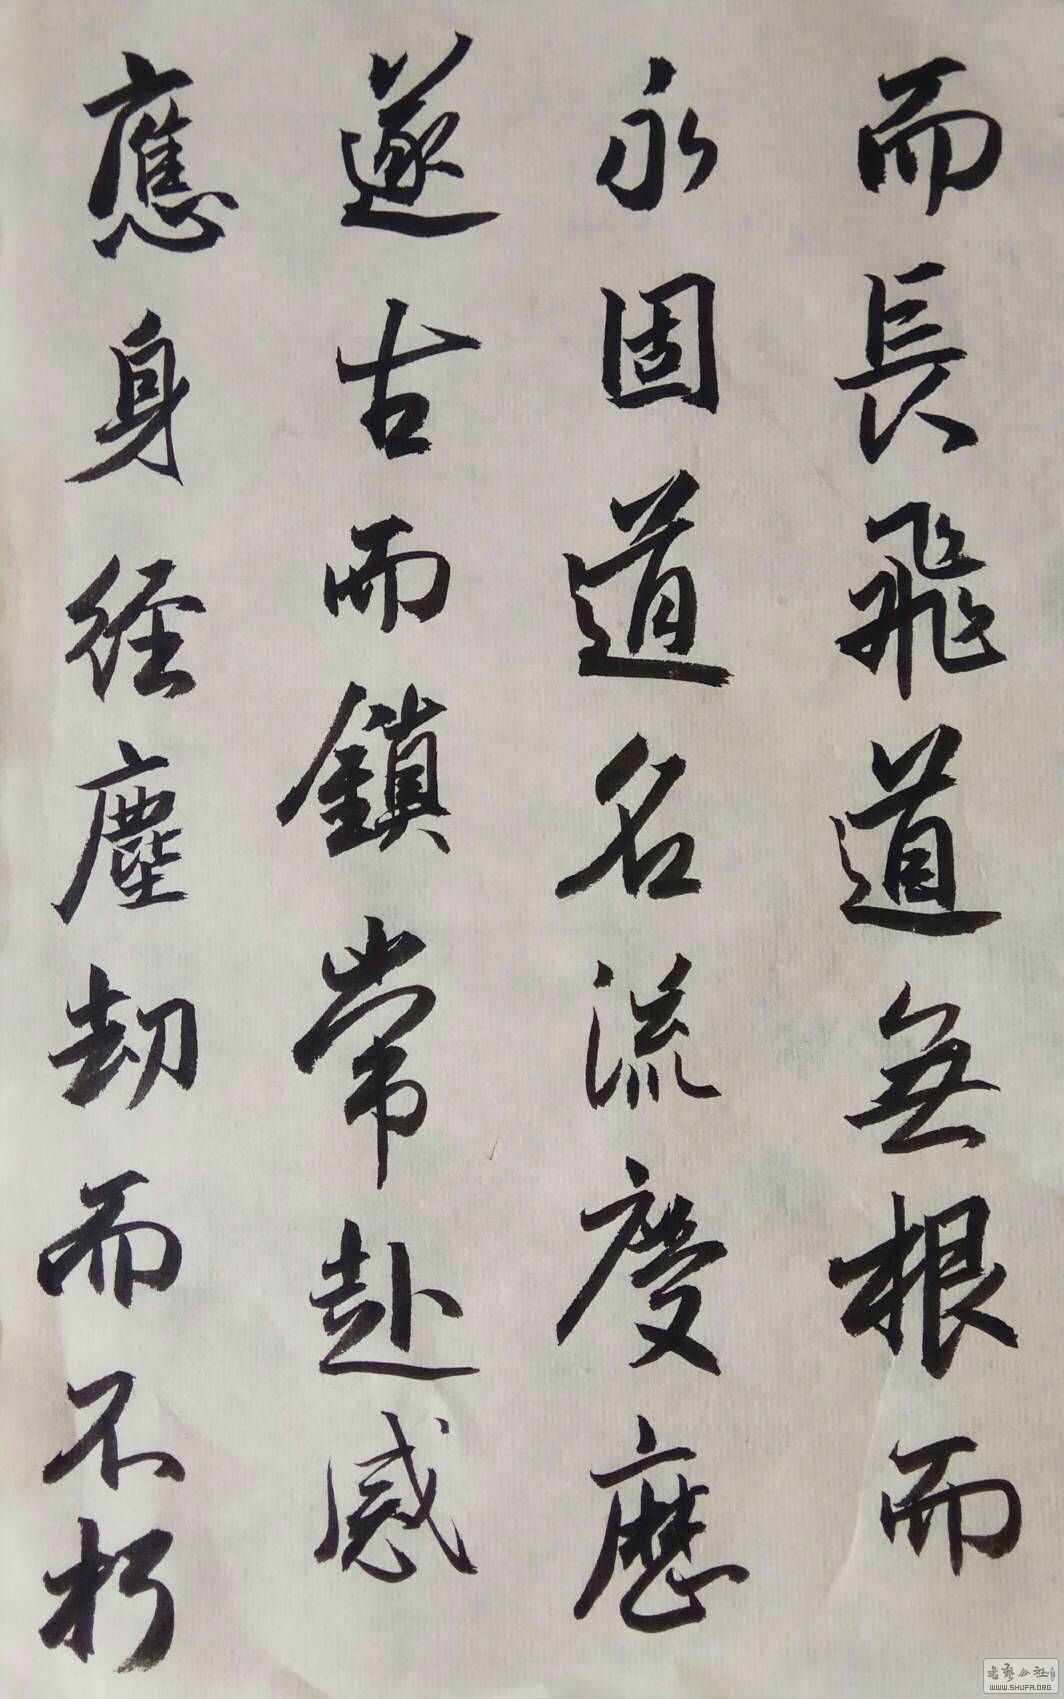 而長飛道無根而
永固道名流慶歷
遂古而鎮常赴感
應身經塵劫而不朽
书艺公社
WWW.SHUFA.ORG